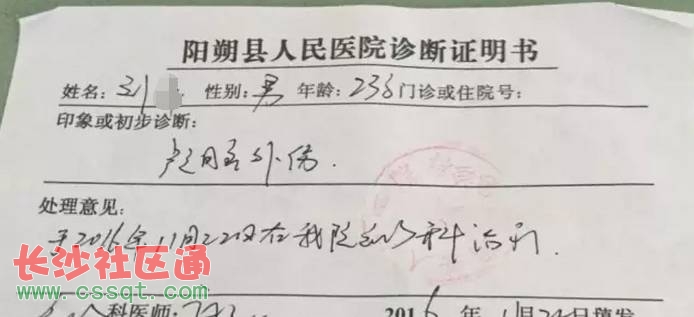 阳朔县人民医院诊断证明书
姓名: 刘 性别: 男 年龄: 23岁 门诊或住院号:
印象或初步诊断:
外伤.
处理意见:
于2016年11月22日在我院 科治疗.
长沙社区通
www.cssqt.com
科医师: 2016年11月22日填发